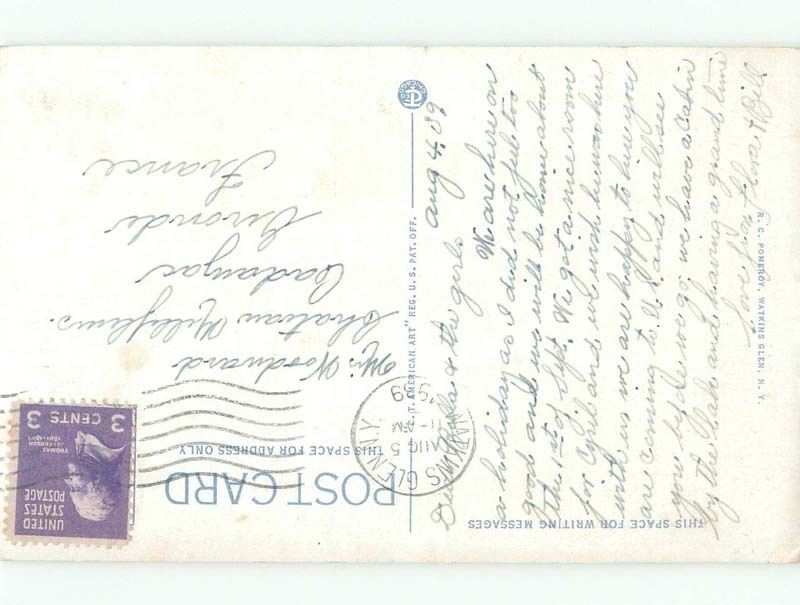 THIS SPACE FOR WRITING MESSAGES
Aug 4, 39
Dear & the girls
We are here on
a holiday as I did not feel too
good and we will be home about
the 1st of Sept. We got a nice room
for Cyril and we wish he was here
with us we are happy to hear you
are coming to U.S. and will see
you before we go, we have a cabin
by the lake and having a grand time
Love from Flora & Bill
R. C. POMEROY, WATKINS GLEN, N. Y.
T. AMERICAN ART" REG. U. S. PAT. OFF.
POST CARD
THIS SPACE FOR ADDRESS ONLY
WATKINS GLEN N.Y.
AUG 5
1939
UNITED
STATES
POSTAGE
THOMAS
JEFFERSON
1801-1809
3 CENTS 3
Mrs Woodward
Chateau Millefleurs.
Cadaujac
Gironde
France